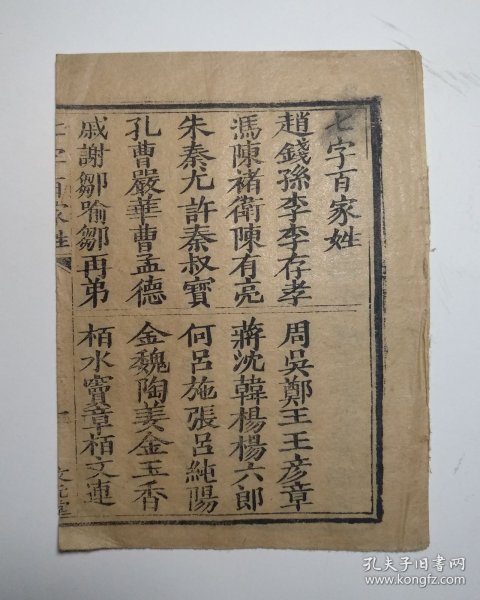 七字百家姓
趙錢孫李李存孝
周吳鄭王王彦章
馮陳褚衛陳有亮
蔣沈韓楊楊六郎
朱秦尤許秦叔寶
何呂施張呂純陽
孔曹嚴華曹孟德
金魏陶姜金玉香
戚謝鄒喻鄒再弟
栢水竇章栢文連
七字百家姓
孔夫子旧书网
www.kongfz.com